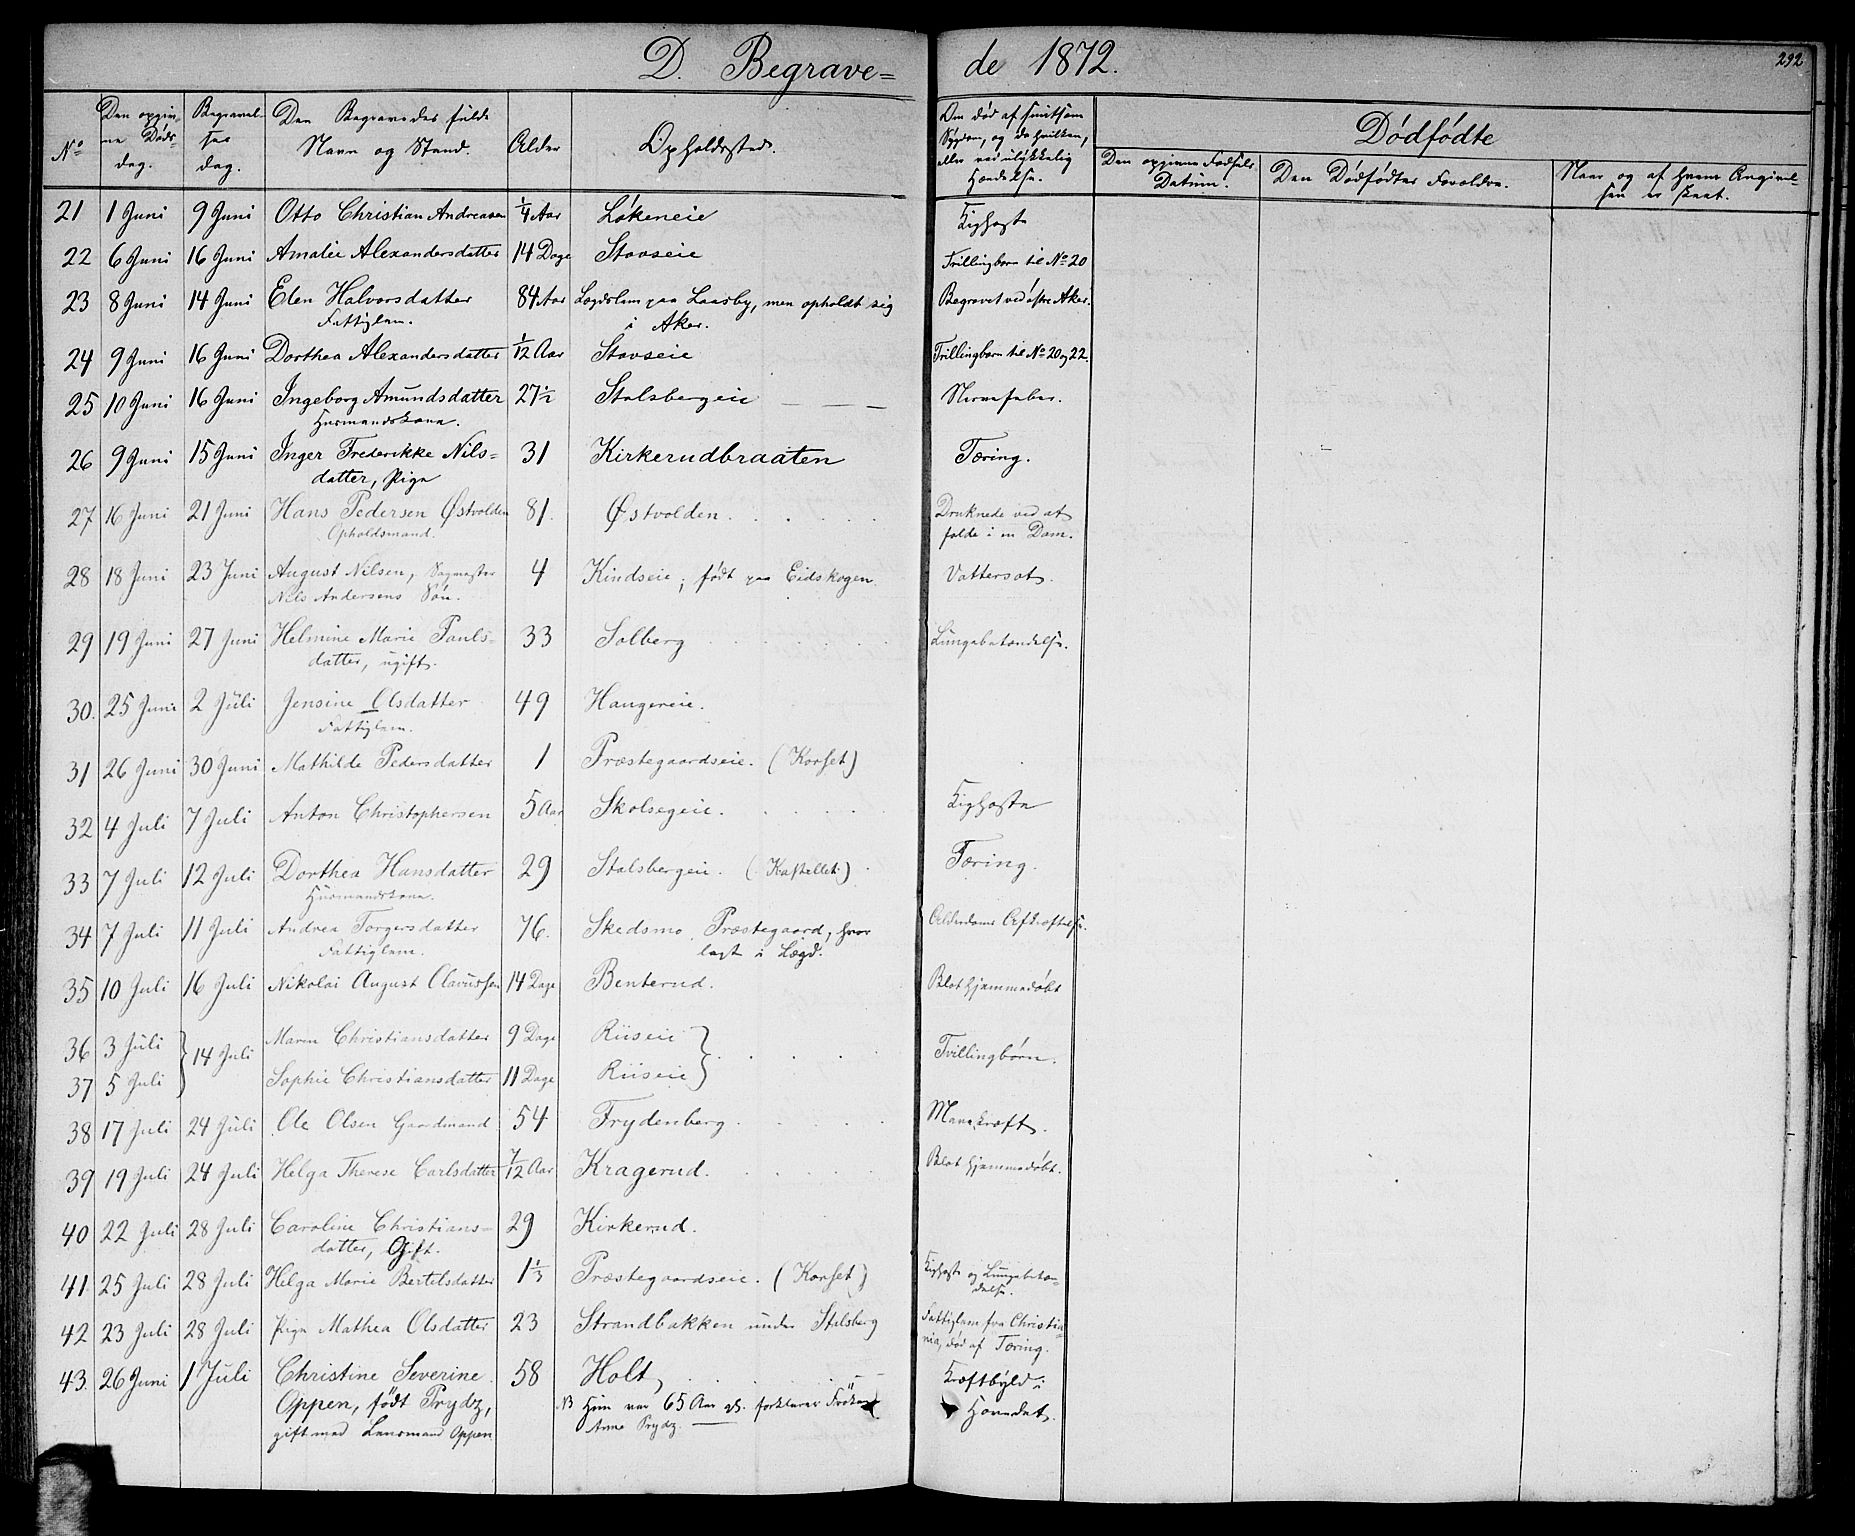 D. Begrave= de 1872.
292
No
Den opgivne Dødsdag.
Begravelses dag.
Den Begravedes fulde Navn og Stand.
Alder
Opholdssted.
Om død af smitsom Sygdom, og da hvilken, eller ved ulykkelig Hændelse.
Dødfødte
Den opgivne Fødsels Datum.
Den Dødfødtes Forældre.
Naar og af hvem Angivelsen er skeet.
21 1 Juni 9 Juni Otto Christian Andreasen 1/4 Aar Løkeneie Kighoste
22 6 Juni 16 Juni Amalie Alexandersdatter 14 Dage Stovseie Trillingbarn til No 20
23 8 Juni 14 Juni Elen Halvorsdatter 84 Aar Lægdslem paa Laasby, men opholdt sig Begravet ved østre Aker.
Fattiglem. i Aker.
24 9 Juni 16 Juni Dorthea Alexandersdatter 1/12 Aar Stovseie Trillingbarn til No 20 og 22.
25 10 Juni 16 Juni Ingeborg Amundsdatter 27 1/2 Stalsbergeie Nervefeber.
Husmandskone.
26 9 Juni 15 Juni Inger Frederikke Nils= 31 Kirkerudbraaten Tæring.
datter, Pige
27 16 Juni 21 Juni Hans Pedersen Østvolden 81. Østvolden. Druknede ved at
Opholdsmand. falde i en Dam.
28 18 Juni 23 Juni August Nilsen, Sagmester 4 Kindseie, født paa Eidskogen. Vattersot.
Nils Andersens Søn.
29 19 Juni 27 Juni Helmine Marie Pauls= 33 Solberg Lungebetændelse.
datter, ugift.
30. 25 Juni 2 Juli Jensine Olsdatter 49 Haugereie.
Fattiglem.
31 26 Juni 30 Juni Mathilde Pedersdatter 1 Præstegaardseie. (Korset)
32 4 Juli 7 Juli Anton Christophersen 5 Aar Skolsegeie. Kighoste
33 7 Juli 12 Juli Dorthea Hansdatter 29 Stalsbergeie. (Kastellet.) Tæring.
Husmandskone.
34 7 Juli 11 Juli Andrea Torgersdatter 76. Skedsmo Præstegaard, hvor Alderdoms Afkræftelse.
Fattiglem. lagt i Lægd.
35 10 Juli 16 Juli Nikolai August Olavussen 14 Dage Benterud. Blot hjemmedøbt
36 3 Juli 14 Juli Maren Christiansdatter 9 Dage Riiseie Tvillingbørn.
37 5 Juli Sophie Christiansdatter 11 Dage Riiseie
38 17 Juli 24 Juli Ole Olsen Gaardmand 54 Frydenberg. Mavekræft.
39 19 Juli 24 Juli Helga Therese Carlsdatter 7/12 Aar Kragerud. Blot hjemmedøbt.
40 22 Juli 28 Juli Caroline Christians= 29 Kirkerud.
datter, Gift.
41. 25 Juli 28 Juli Helga Marie Bertelsdatter 1 1/3 Præstegaardseie. (Korset) Kighoste og Lungebetæn=
delse.
42 23 Juli 28 Juli Pige Mathea Olsdatter 23 Strandbakken under Stalsberg Fattiglem fra Christia=
nia, død af Tæring.
43. 26 Juni 1 Juli Christine Severine 58 Holt, Kræftbyld i
Oppen, født Prydz, NB Hun var 65 Aar gl. forklarer Frøken Hovedet.
gift med Lensmand Oppen Anne Prydz.